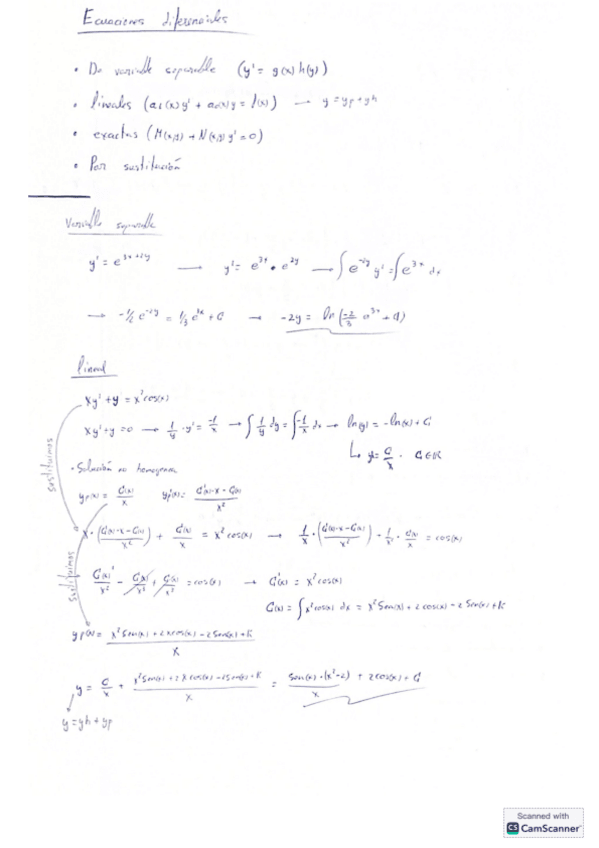 Ecuaciones diferenciales
• De variable separable (y' = g(x) h(y))
• lineales (a₁(x) y' + a₀(x) y = f(x)) → y = yp + yh
• exactas (M(x,y) + N(x,y) y' = 0)
• Por sustitución
Variable separable
y' = e^{3x+2y} → y' = e^{3x} • e^{2y} → ∫ e^{-2y} y' = ∫ e^{3x} dx
→ -1/2 e^{-2y} = 1/3 e^{3x} + C → -2y = ln(-2/3 e^{3x} + C)
lineal
xy' + y = x³cos(x)
xy' + y = 0 → 1/y · y' = -1/x → ∫ 1/y dy = ∫ -1/x dx → ln(y) = -ln(x) + C
↳ y = C/x . C∈ℝ
Sustituimos
• Solución no homogenea
yp(x) = C(x)/x y'p(x) = (C'(x)·x - C(x))/x²
x · ((C'(x)·x - C(x))/x²) + C(x)/x = x³cos(x) → 1/x · ((C'(x)·x - C(x))/x²) + 1/x² · C(x)/x = cos(x)
Sustituimos
C'(x)/x² - C(x)/x³ + C(x)/x³ = cos(x) → C'(x) = x²cos(x)
C(x) = ∫ x²cos(x) dx = x²Sen(x) + 2cos(x) - 2Sen(x) + K
yp(x) = (x²Sen(x) + 2xcos(x) - 2Sen(x) + K)/x
y = C/x + (x²Sen(x) + 2xcos(x) - 2Sen(x) + K)/x = Sen(x)·(x²-2)/x + 2cos(x) + C
y = yh + yp
Scanned with
CS CamScanner